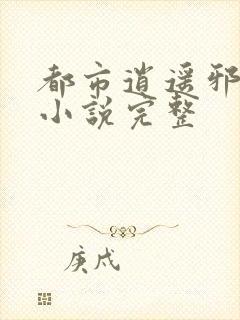 都市逍遥邪
小說完整
庚戌